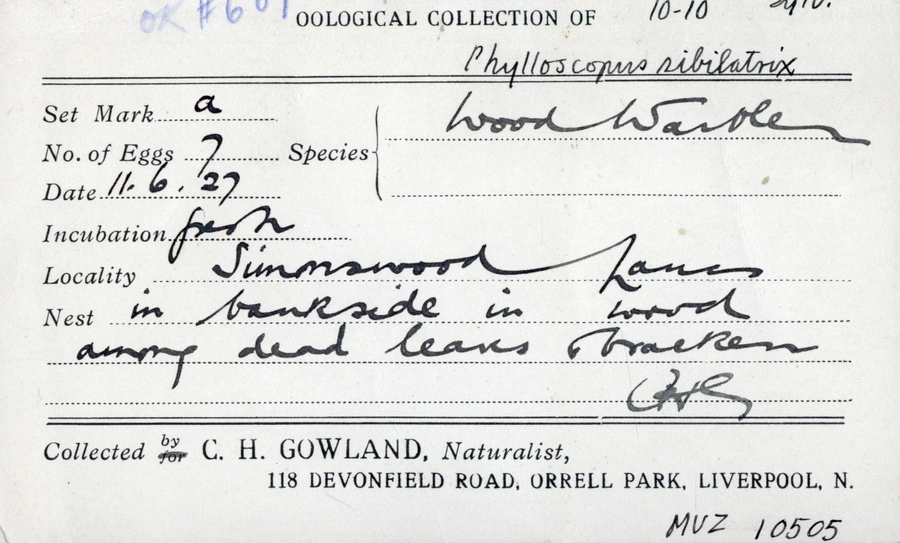 OR #601 OOLOGICAL COLLECTION OF 10-10
Phylloscopus sibilatrix
Set Mark a
No. of Eggs 7 Species Wood Warbler
Date 11.6.27
Incubation fresh
Locality Simonswood Lancs
Nest in bankside in wood
among dead leaves & bracken
CHG
Collected by for C. H. GOWLAND, Naturalist,
118 DEVONFIELD ROAD, ORRELL PARK, LIVERPOOL, N.
MVZ 10505